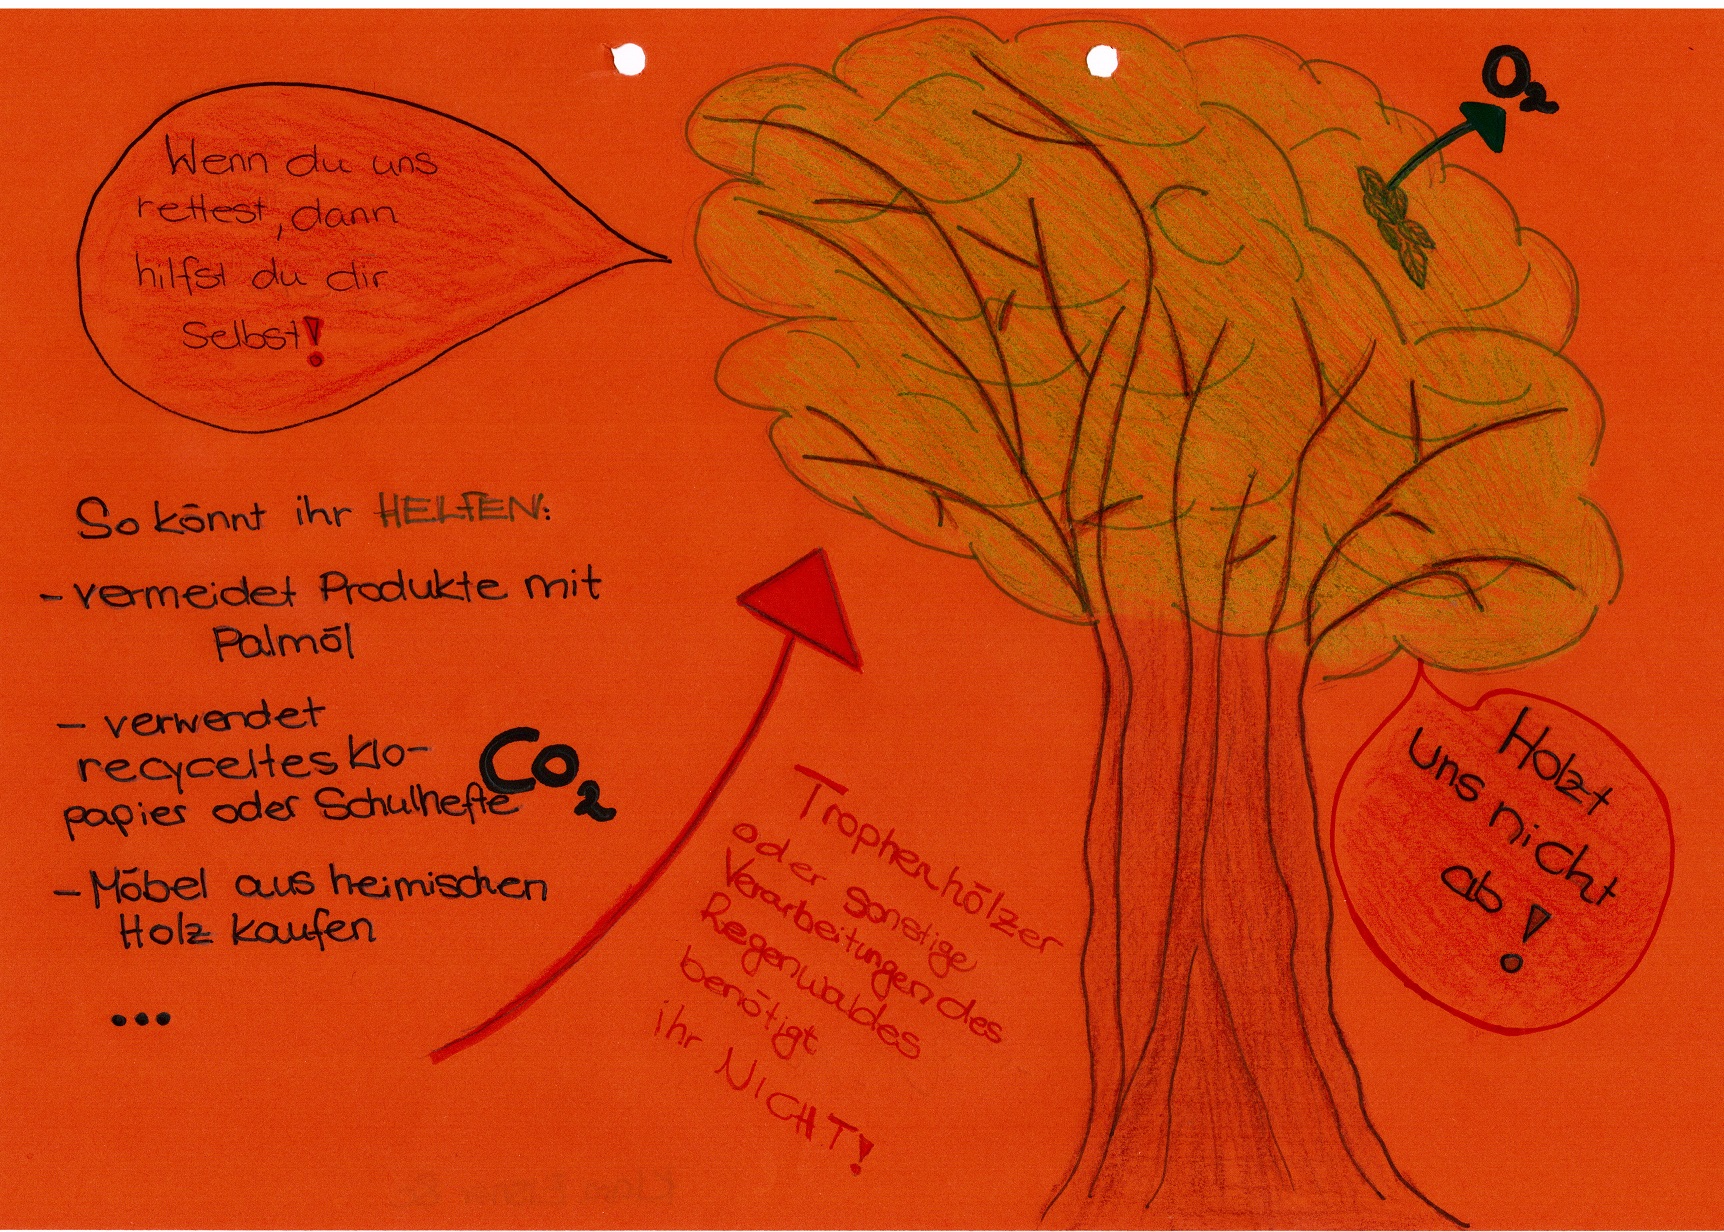 Wenn du uns
rettest, dann
hilfst du dir
selbst!
O₂
So könnt ihr HELFEN:
- vermeidet Produkte mit
Palmöl
- verwendet
recyceltes Klo-
papier oder Schulhefte
- Möbel aus heimischen
Holz kaufen
...
CO₂
Trophenhölzer
oder sonstige
Verarbeitungen des
Regenwaldes
benötigt
ihr NICHT!
Holzt
uns nicht
ab!